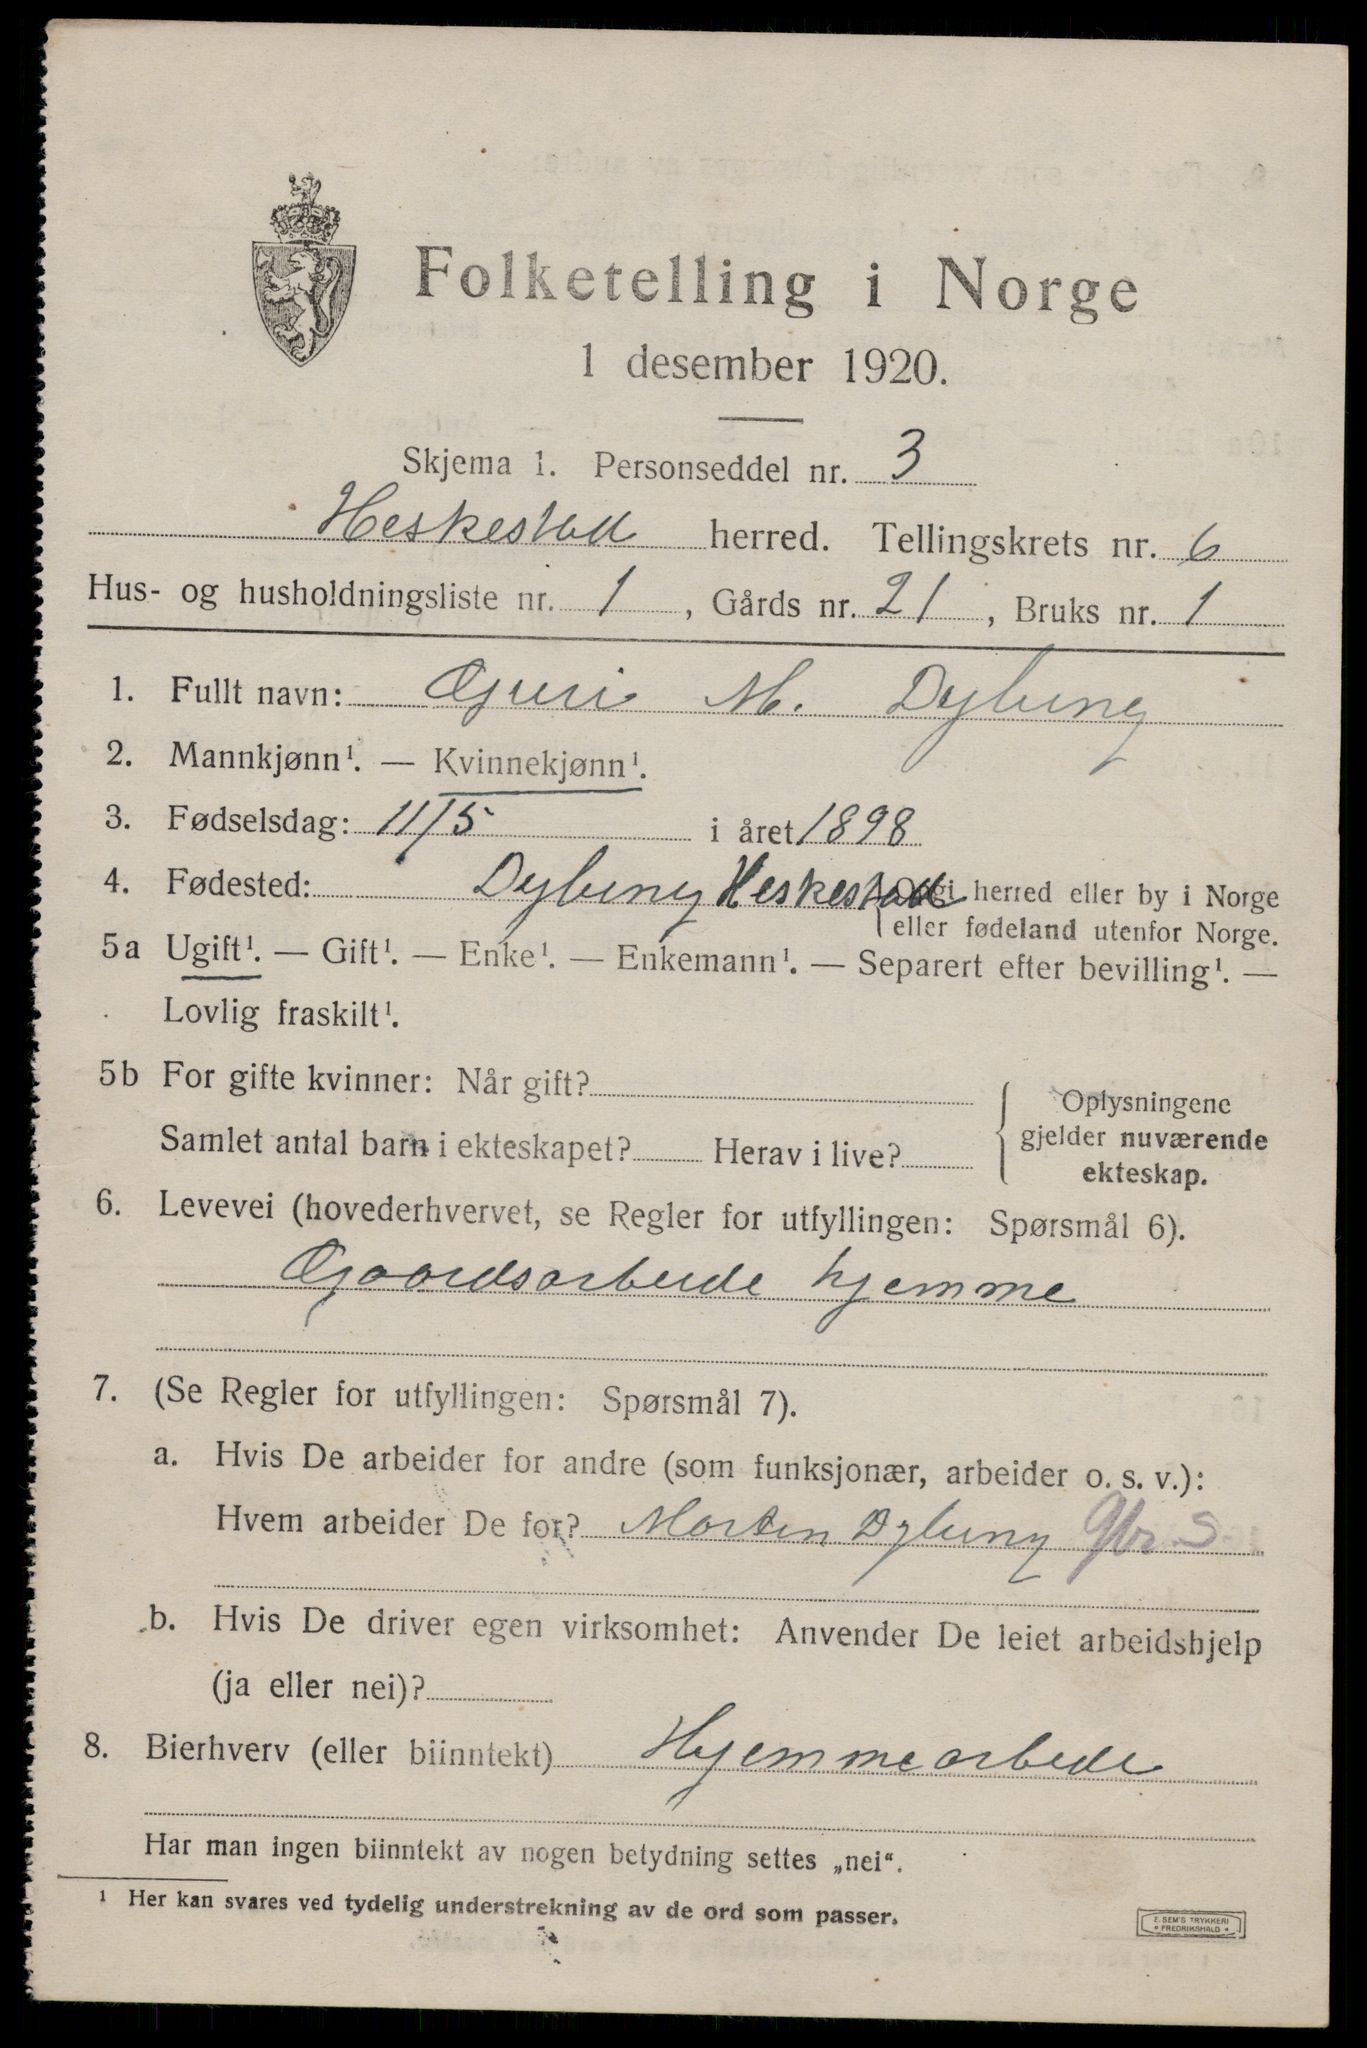 Folketelling i Norge
1 desember 1920.
Skjema 1. Personseddel nr. 3
Heskestad herred. Tellingskrets nr. 6
Hus- og husholdningsliste nr. 1, Gårds nr. 21, Bruks nr. 1
1. Fullt navn: Guri M. Dybing
2. Mannkjønn¹. — Kvinnekjønn¹.
3. Fødselsdag: 11/5 i året 1898
4. Fødested: Dybing Heskestad { Opgi herred eller by i Norge
eller fødeland utenfor Norge.
5a Ugift¹. — Gift¹. — Enke¹. — Enkemann¹. — Separert efter bevilling¹. —
Lovlig fraskilt¹.
5b For gifte kvinner: Når gift?
Samlet antal barn i ekteskapet? Herav i live?
{ Oplysningene
gjelder nuværende
ekteskap.
6. Levevei (hovederhvervet, se Regler for utfyllingen: Spørsmål 6).
Gaardsarbeide hjemme
7. (Se Regler for utfyllingen: Spørsmål 7).
a. Hvis De arbeider for andre (som funksjonær, arbeider o. s. v.):
Hvem arbeider De for? Morten Dybing Gbr. S
b. Hvis De driver egen virksomhet: Anvender De leiet arbeidshjelp
(ja eller nei)?
8. Bierhverv (eller biinntekt) Hjemmearbede
Har man ingen biinntekt av nogen betydning settes „nei“.
¹ Her kan svares ved tydelig understrekning av de ord som passer.
E. SEM'S TRYKKERI
* FREDRIKSHALD *